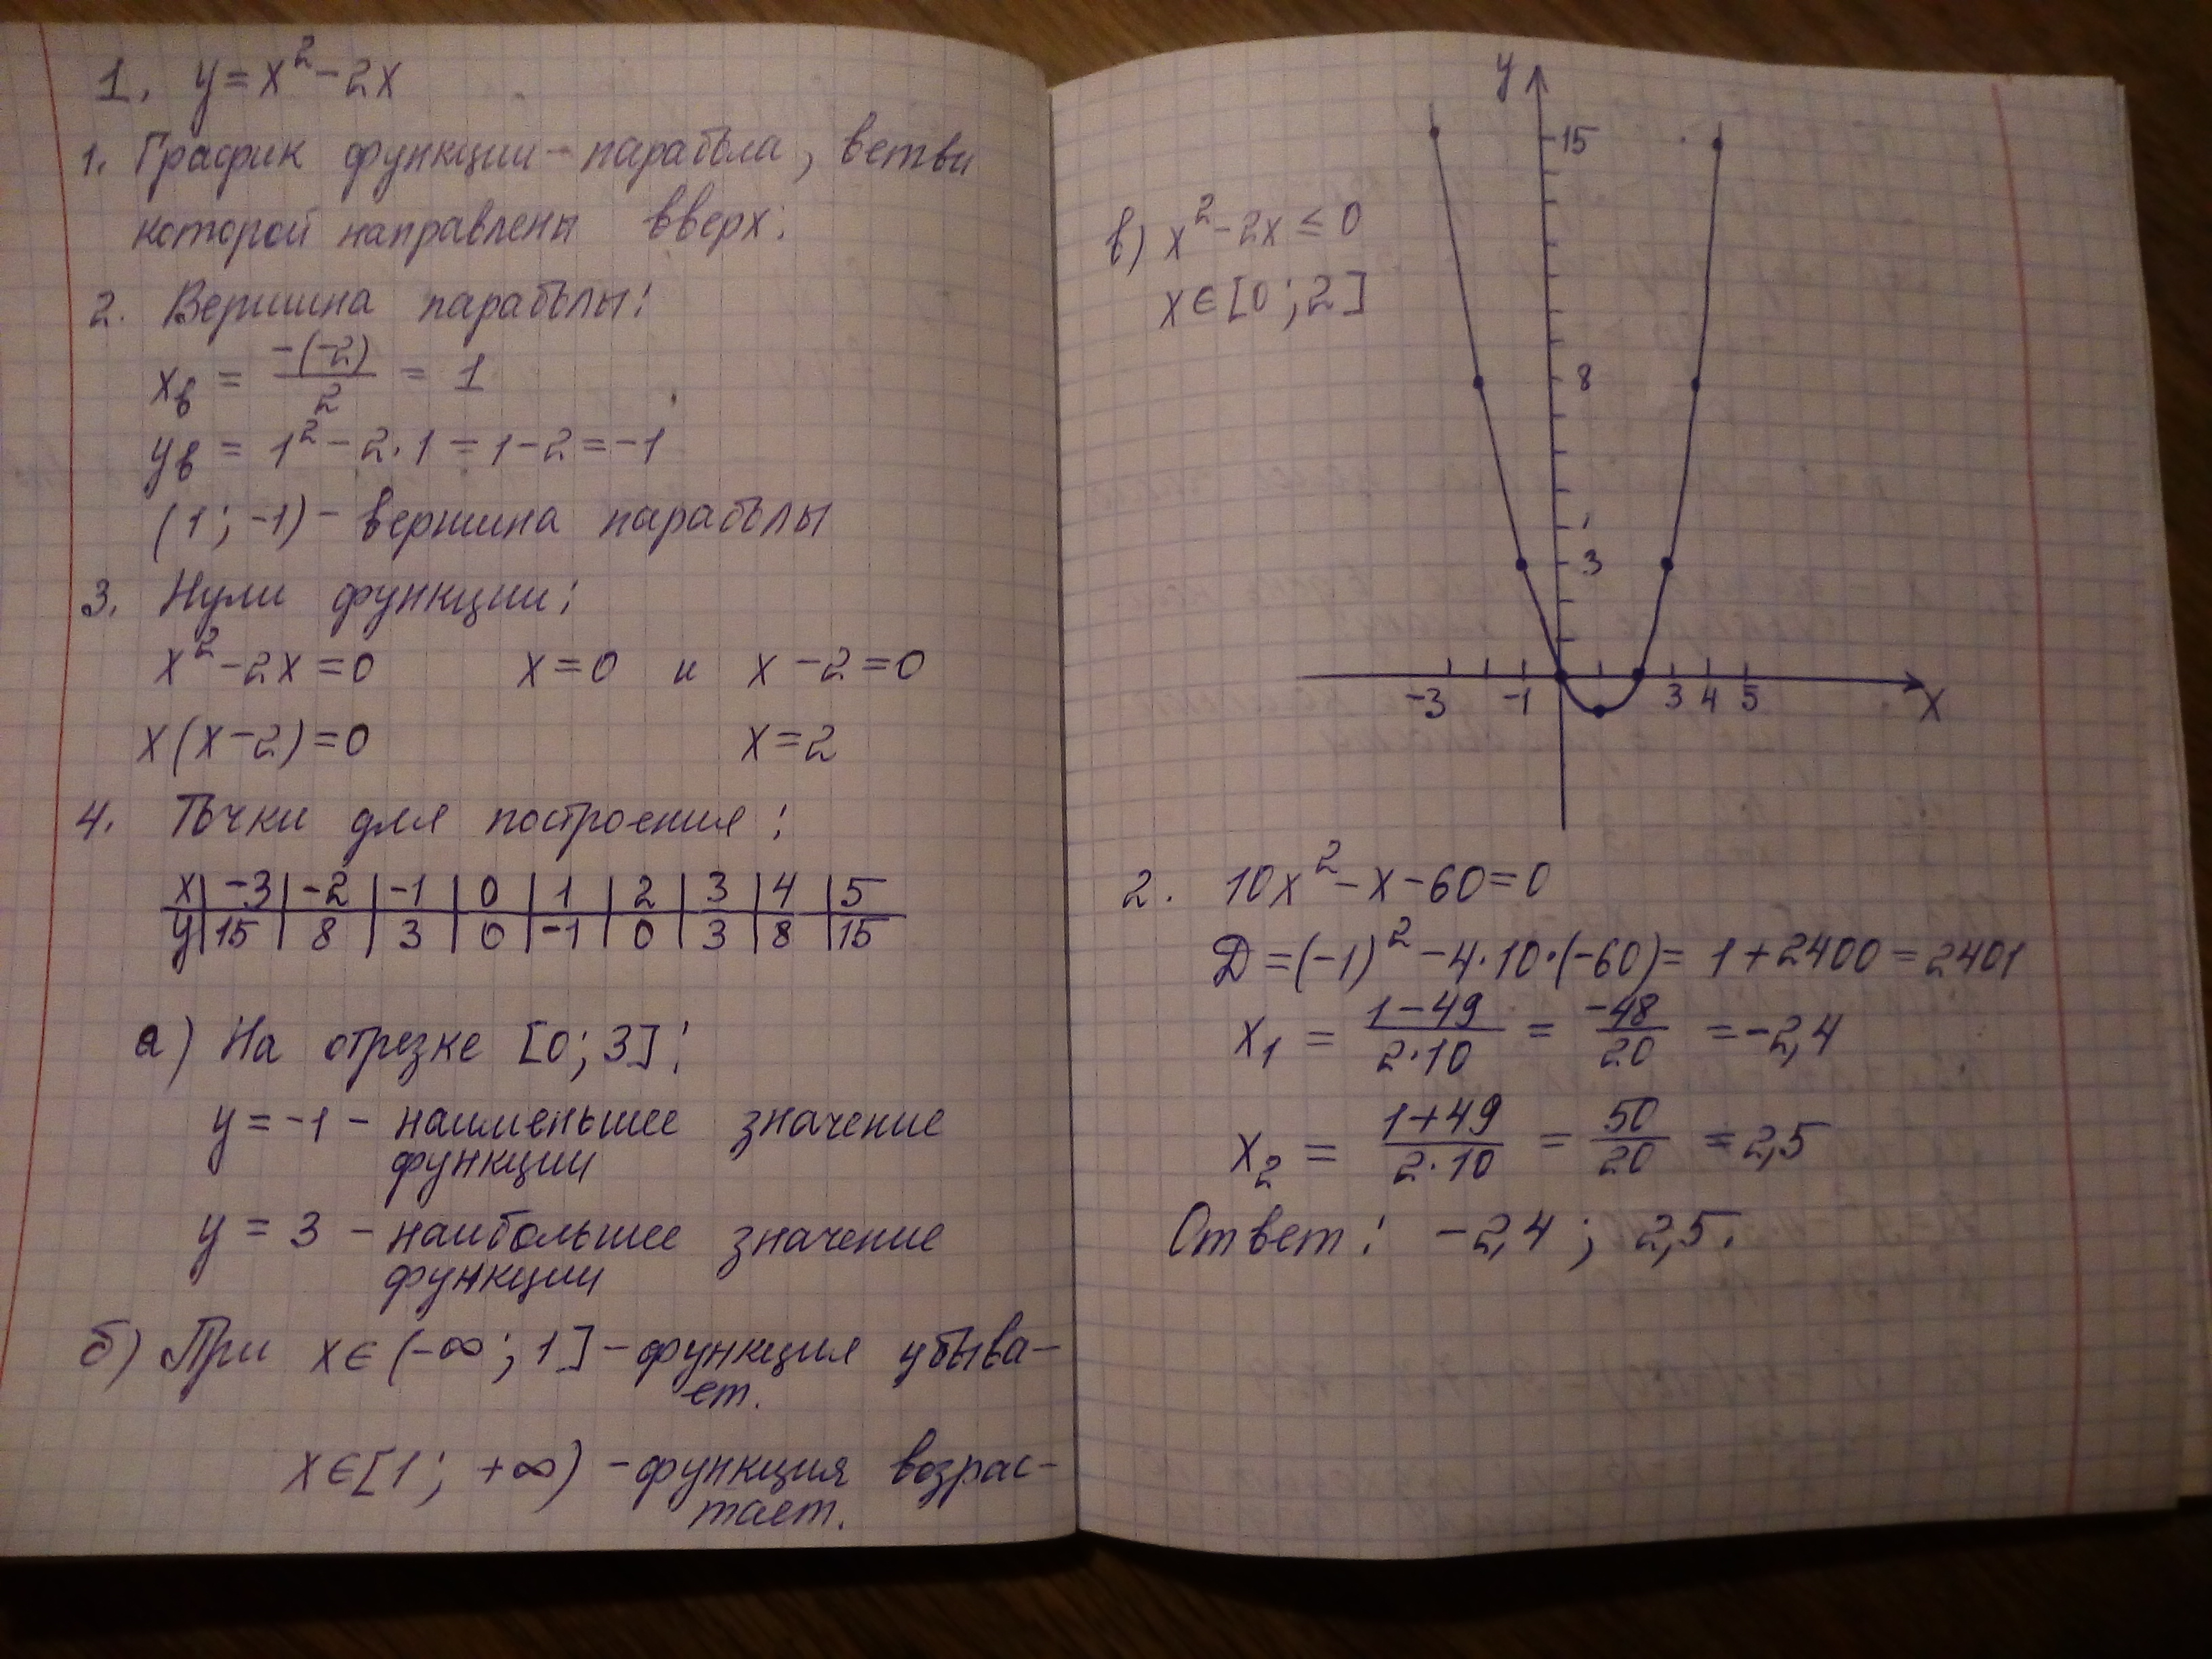 1. y = x² - 2x
1. График функции - парабола, ветви
которой направлены вверх.
2. Вершина параболы:
xв = -(-2)/2 = 1
yв = 1² - 2·1 = 1 - 2 = -1
(1; -1) - вершина параболы
3. Нули функции:
x² - 2x = 0 x = 0 и x - 2 = 0
x(x - 2) = 0 x = 2
4. Точки для построения:
x | -3 | -2 | -1 | 0 | 1 | 2 | 3 | 4 | 5
y | 15 | 8 | 3 | 0 | -1 | 0 | 3 | 8 | 15
а) На отрезке [0; 3]:
y = -1 - наименьшее значение
функции
y = 3 - наибольшее значение
функции
б) При x ∈ (-∞; 1] - функция убыва-
ет.
x ∈ [1; +∞) - функция возрас-
тает.
y
15
в) x² - 2x ≤ 0
x ∈ [0; 2]
8
3
-3 -1 3 4 5 x
2. 10x² - x - 60 = 0
D = (-1)² - 4·10·(-60) = 1 + 2400 = 2401
x₁ = (1 - 49)/(2·10) = -48/20 = -2,4
x₂ = (1 + 49)/(2·10) = 50/20 = 2,5
Ответ: -2,4; 2,5.